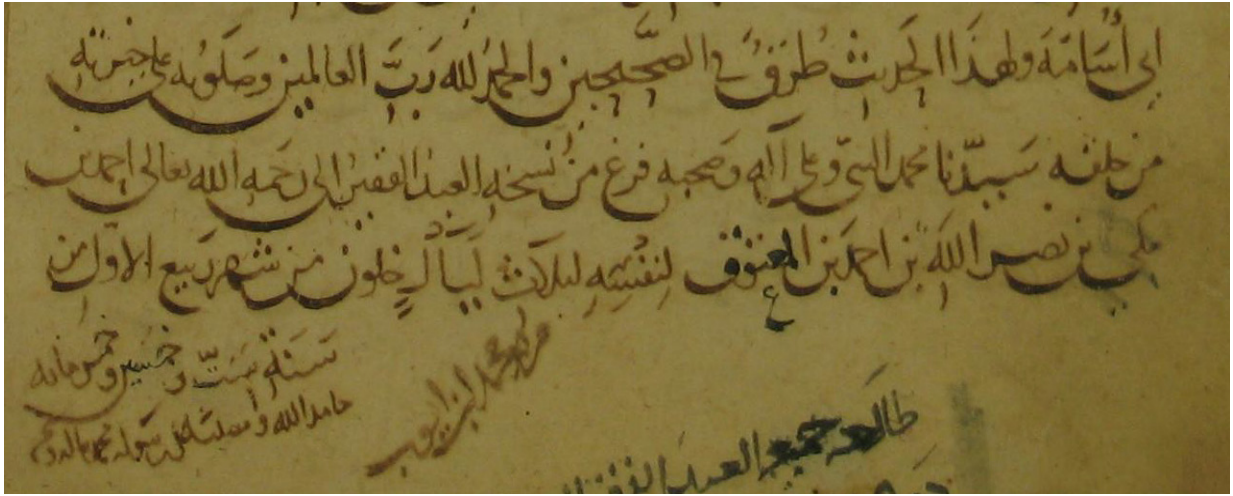 ابي أسامة ولهذا الحديث طرق في الصحيحين والحمد لله رب العالمين وصلوته على خيرته
من خلقه سيدنا محمد النبي وعلى آله وصحبه فرغ من نسخه العبد الفقير الى رحمة الله تعالى احمد بن
مكي بن نصر الله بن احمد بن المعتوق لنفسه لثلاث ليال خلون من شهر ربيع الاول من
سنة ست وخمسين وخمس مائة
حامدا لله و على رسوله محمد واله
محمد ابن ايوب
طالعه جميعه العبد الفقير